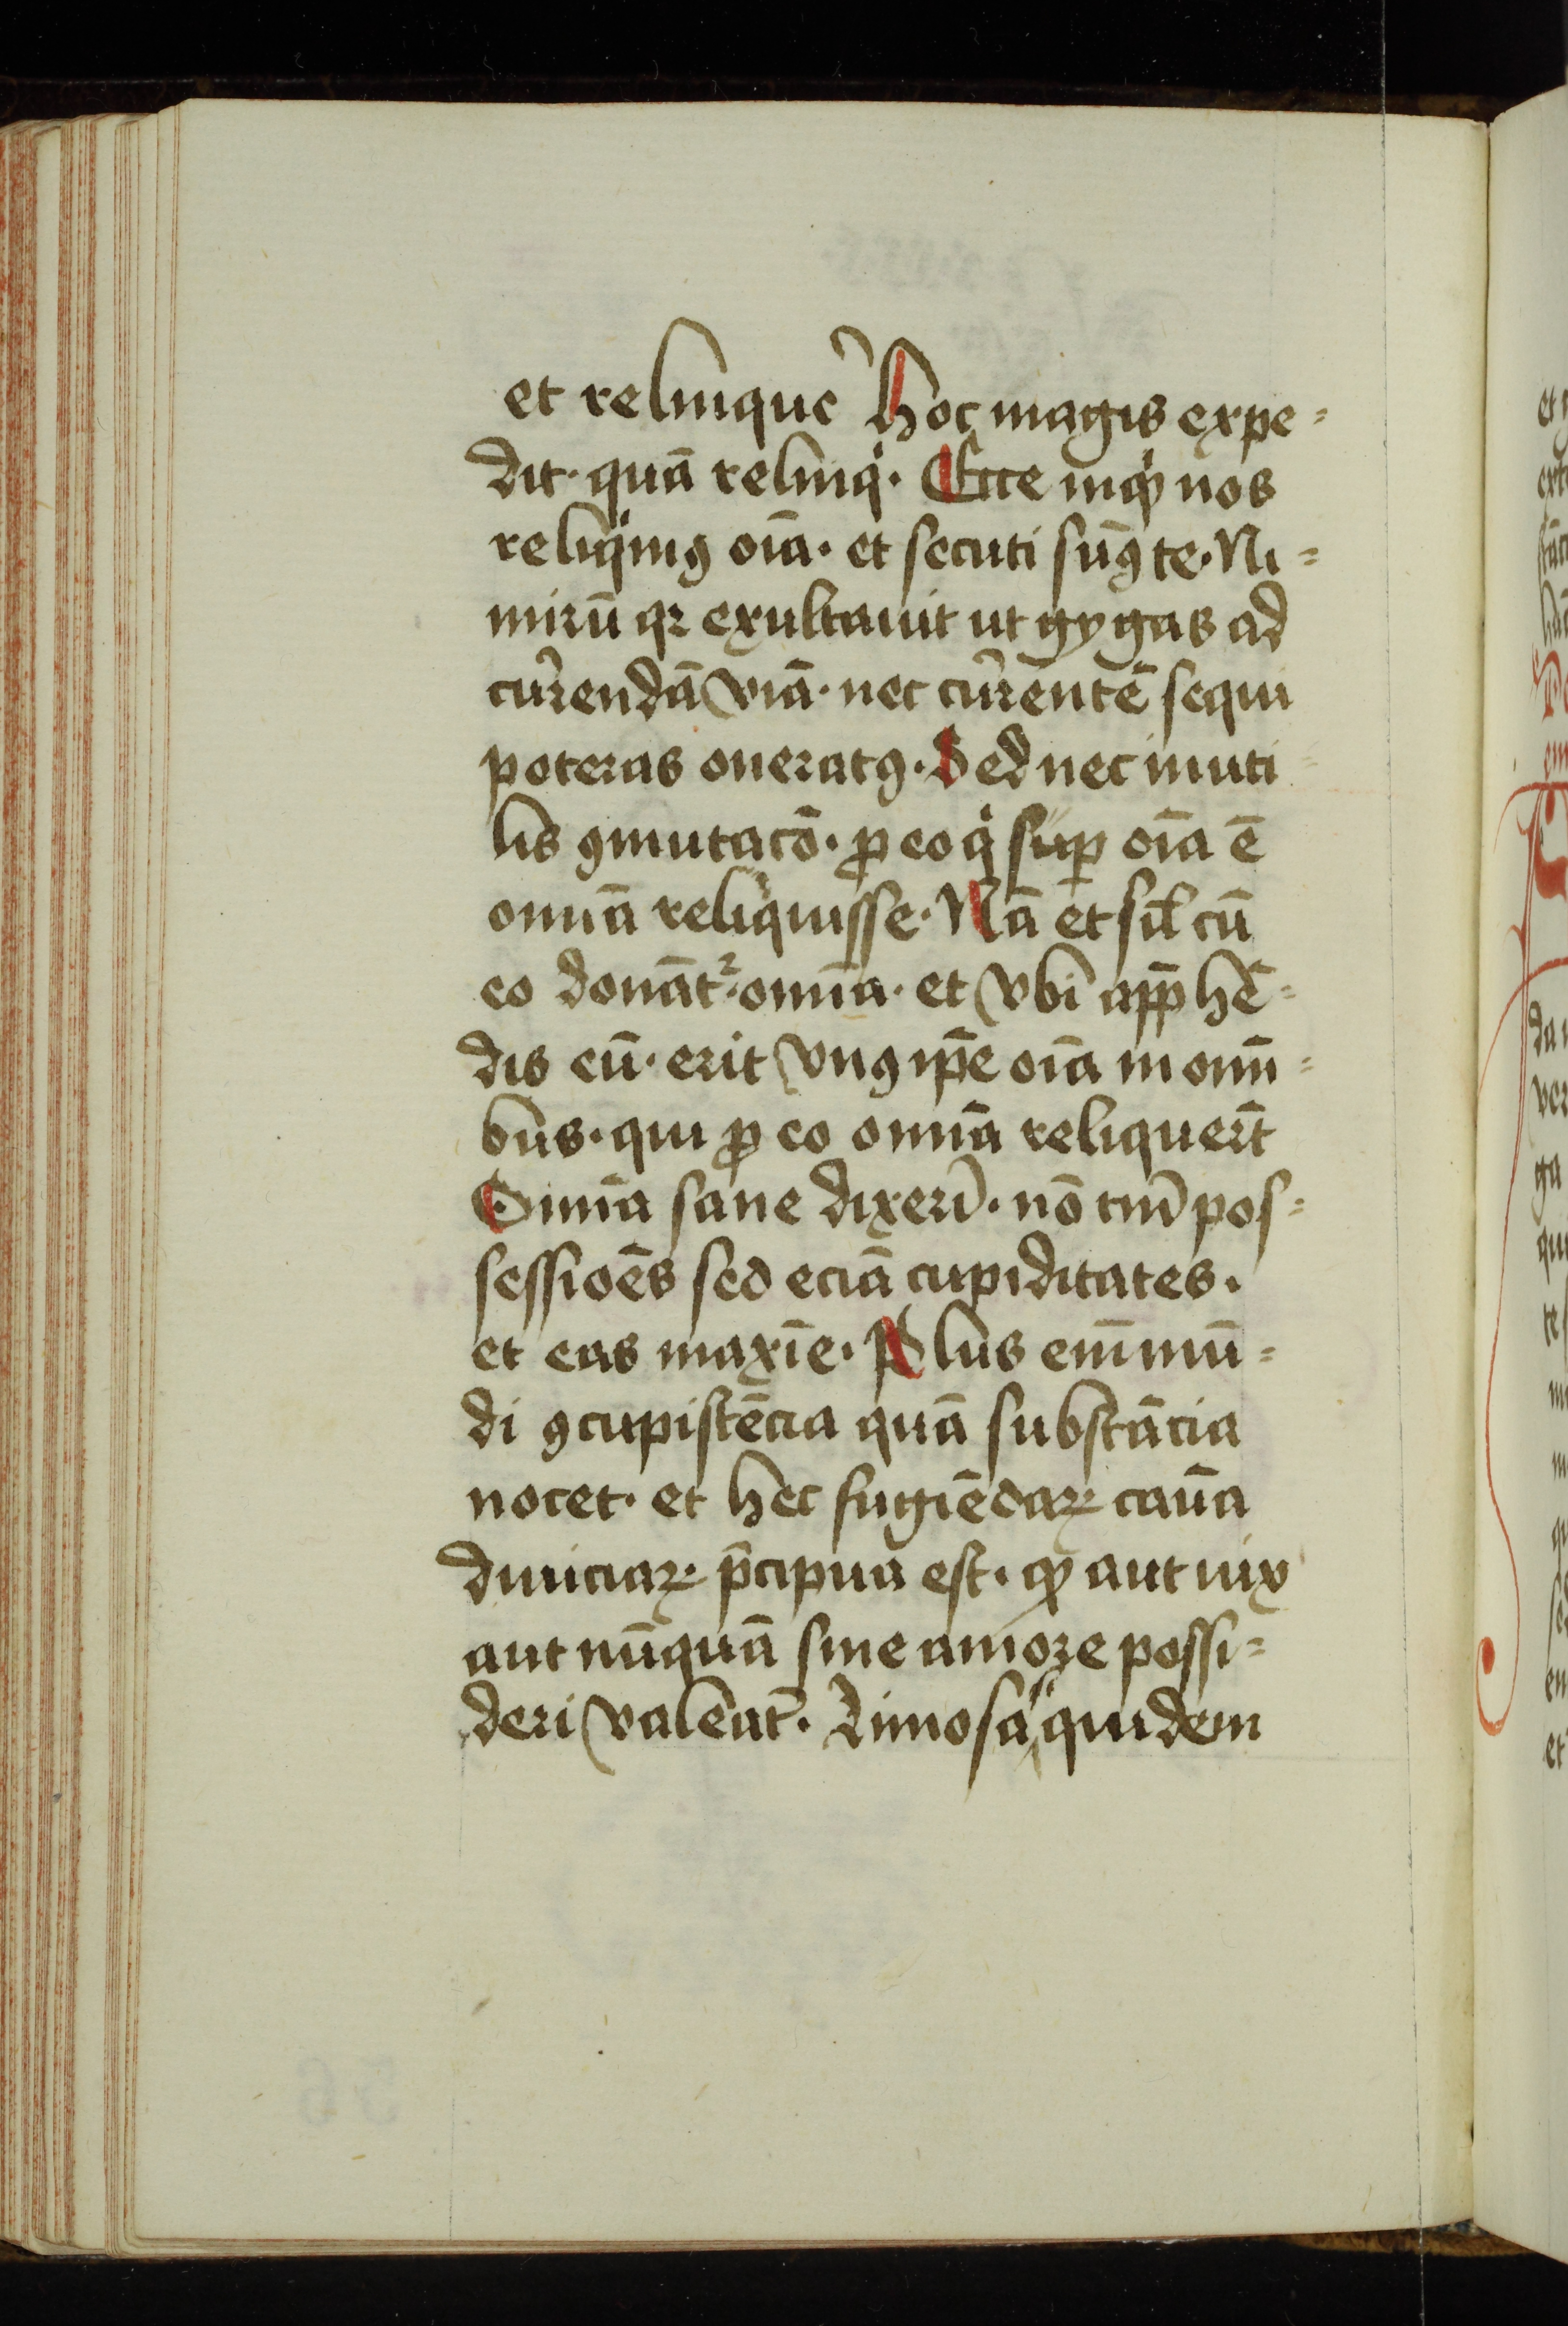 et relinque᷑ hoc magis expe=
dit· quā relinqͥ· Ecce inqͥ nos
reliqͥmꝰ oīa· et secuti sumꝰ te· Ni=
mirū qꝛ exultauit ut gygas ad
cur᷑endā viā· nec cur᷑entē sequi
poteras oneratꝰ· Sed nec inuti
lis ꝯmutacō· ꝓ eo qͥ suꝑ oīa ē
omnīa reliquisse· Nā et sil̄ cū
eo donāt᷑· omnīa· et vbi app̄hē=
dis eū· erit vnꝰ ip̄e oīa in omī=
bus· qui ꝓ eo omnīa reliquer̄t
Omnīa sane dixerī· nō tm̄ pos=
sessiōēs sed eciā cupiditates·
et eas maxīe· Plus eīm mū=
di ꝯcupistēcia quā substācia
nocet· et hec fugiēdaꝝ cauā
diuiciaꝝ· p̄cipua est· ꝙ aut uix
aut nūquā sine amore possi=
deri valeāt᷑· Limosa quidem